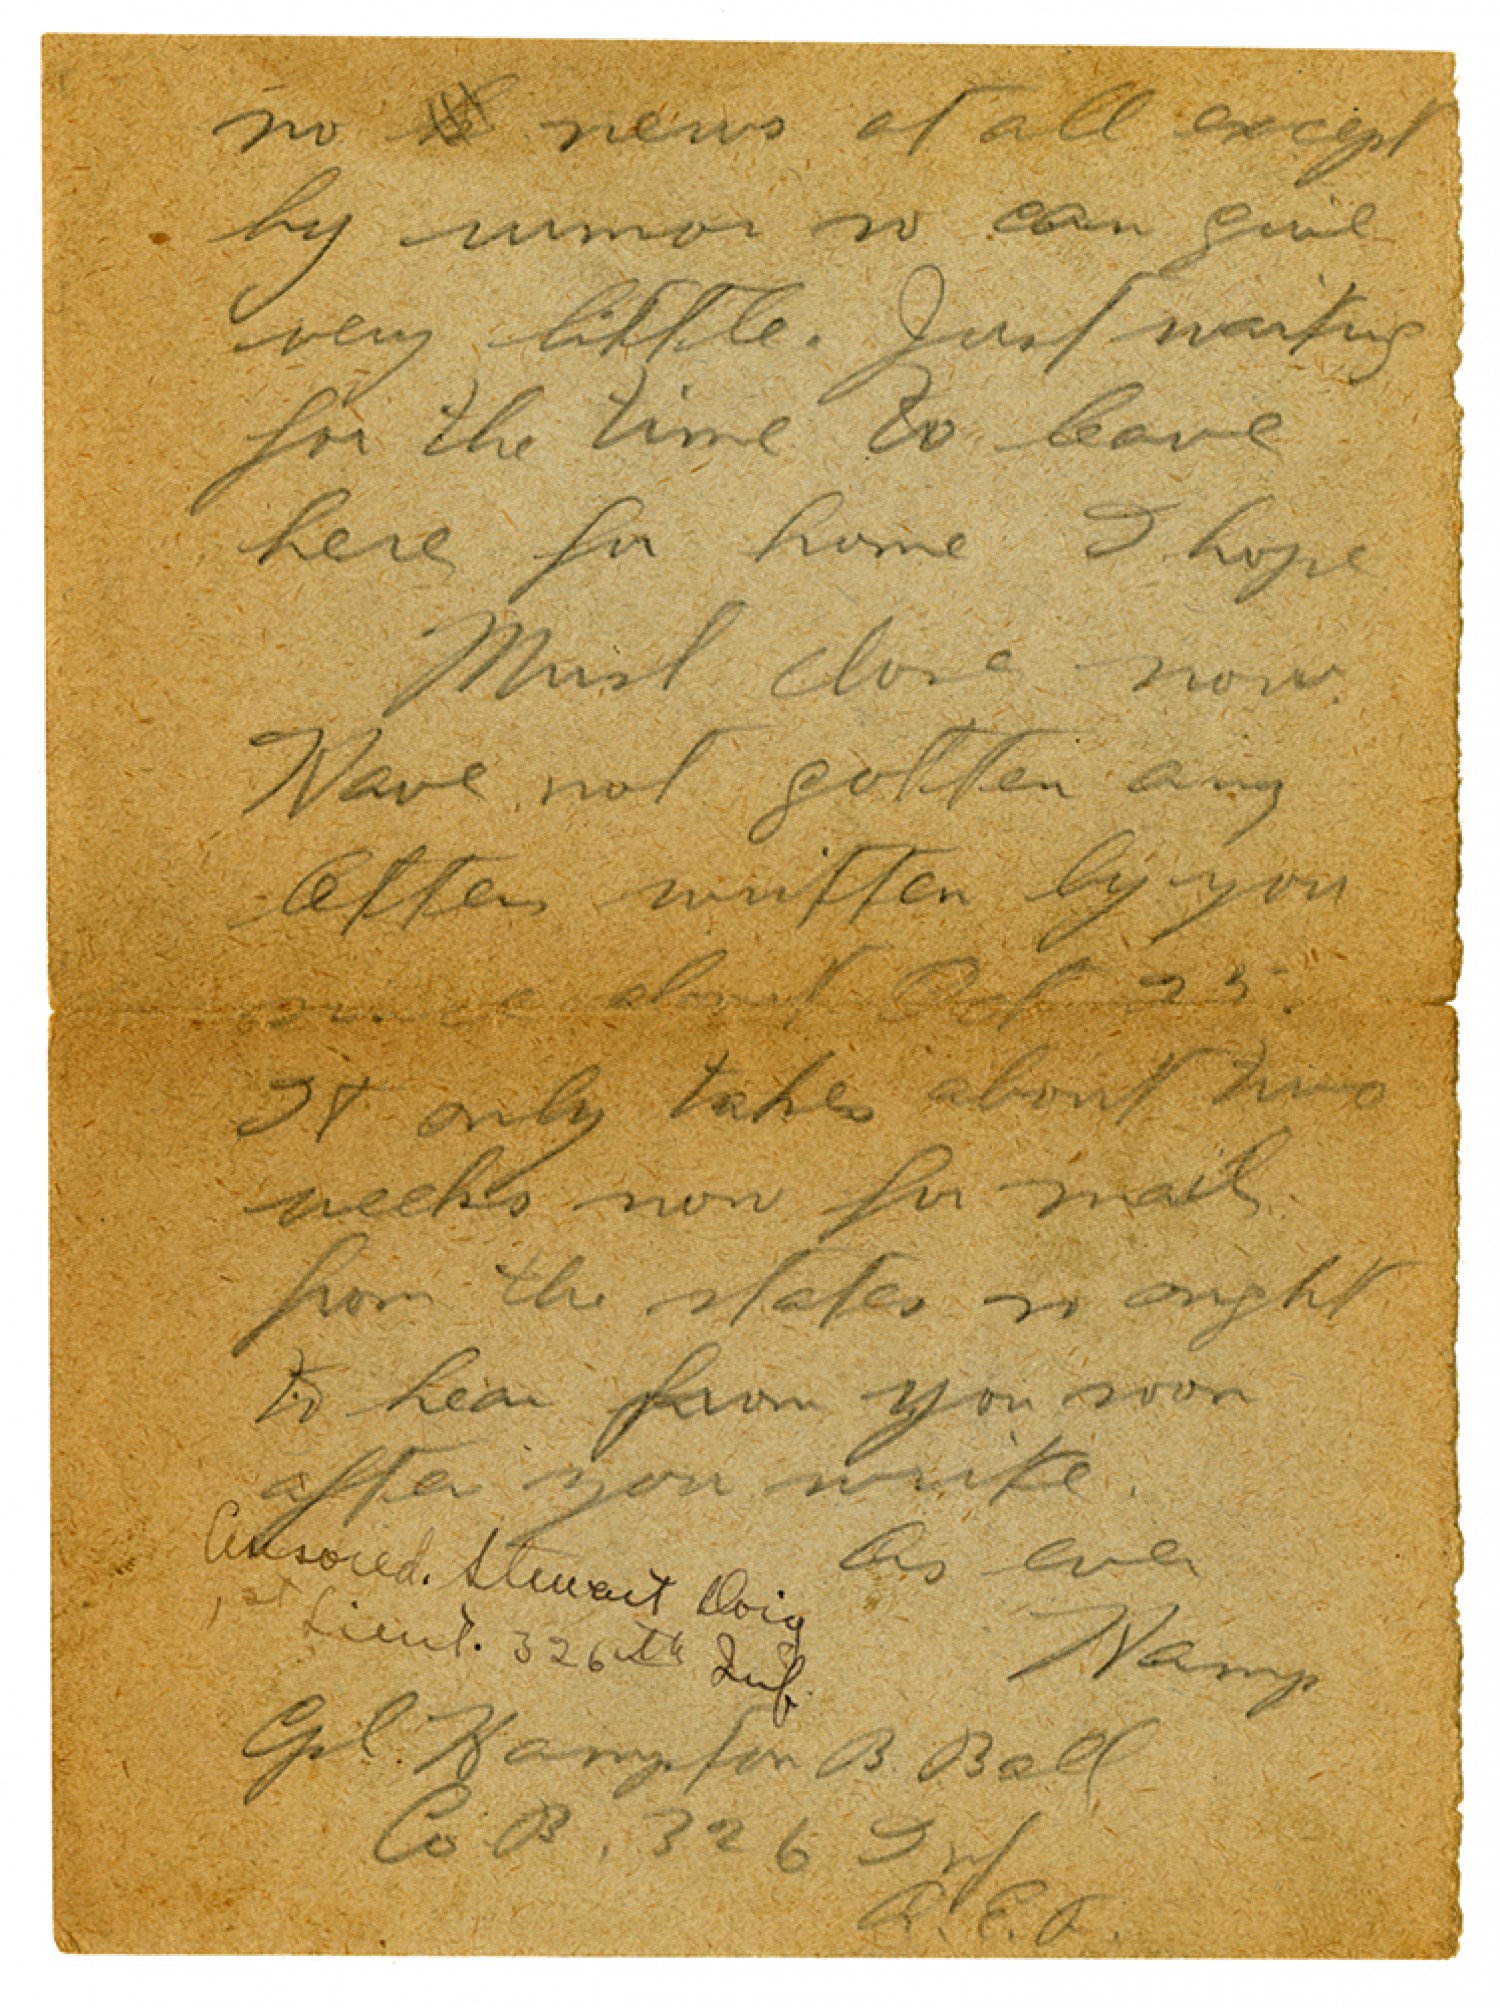 no news at all except
by rumor so can give
very little. Just waiting
for the time to leave
here for home I hope
Must close now.
Have not gotten any
letters written by you
since about Oct 25.
It only takes about two
weeks now for mail
from the states so ought
to hear from you soon
after you write.
As ever
Hamp
Censored. Stewart Doig
1st Lieut. 326th Inf.
Cpl. Hampton B. Ball
Co B. 326 Inf
A.E.F.